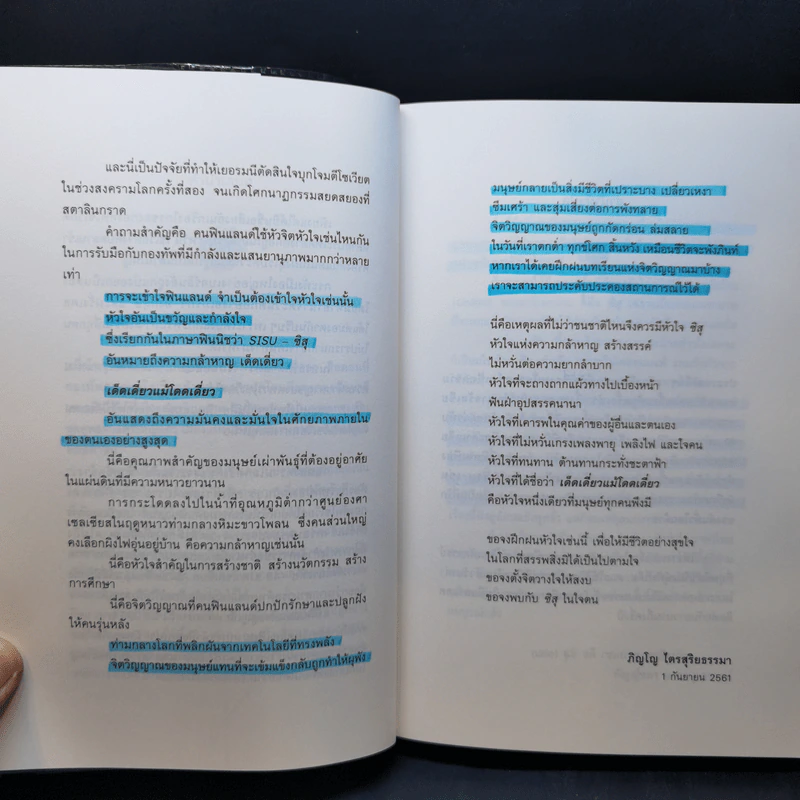 และนี่เป็นปัจจัยที่ทำให้เยอรมนีตัดสินใจบุกโจมตีโซเวียต
ในช่วงสงครามโลกครั้งที่สอง จนเกิดโศกนาฏกรรมสยดสยองที่
สตาลินกราด
คำถามสำคัญคือ คนฟินแลนด์ใช้หัวจิตหัวใจเช่นไหนกัน
ในการรับมือกับกองทัพที่มีกำลังและแสนยานุภาพมากกว่าหลาย
เท่า
การจะเข้าใจฟินแลนด์ จำเป็นต้องเข้าใจหัวใจเช่นนั้น
หัวใจอันเป็นขวัญและกำลังใจ
ซึ่งเรียกกันในภาษาฟินนิชว่า SISU – ซิสุ
อันหมายถึงความกล้าหาญ เด็ดเดี่ยว
เด็ดเดี่ยวแม้โดดเดี่ยว
อันแสดงถึงความมั่นคงและมั่นใจในศักยภาพภายใน
ของตนเองอย่างสูงสุด
นี่คือคุณภาพสำคัญของมนุษย์เผ่าพันธุ์ที่ต้องอยู่อาศัย
ในแผ่นดินที่มีความหนาวยาวนาน
การกระโดดลงไปในน้ำที่อุณหภูมิต่ำกว่าศูนย์องศา
เซลเซียสในฤดูหนาวท่ามกลางหิมะขาวโพลน ซึ่งคนส่วนใหญ่
คงเลือกผิงไฟอุ่นอยู่บ้าน คือความกล้าหาญเช่นนั้น
นี่คือหัวใจสำคัญในการสร้างชาติ สร้างนวัตกรรม สร้าง
การศึกษา
นี่คือจิตวิญญาณที่คนฟินแลนด์ปกปักรักษาและปลูกฝัง
ให้คนรุ่นหลัง
ท่ามกลางโลกที่พลิกผันจากเทคโนโลยีที่ทรงพลัง
จิตวิญญาณของมนุษย์แทนที่จะเข้มแข็งกลับถูกทำให้ผุพัง
มนุษย์กลายเป็นสิ่งมีชีวิตที่เปราะบาง เปลี่ยวเหงา
ซึมเศร้า และสุ่มเสี่ยงต่อการพังทลาย
จิตวิญญาณของมนุษย์ถูกกัดกร่อน ล่มสลาย
ในวันที่เราตกต่ำ ทุกข์โศก สิ้นหวัง เหมือนชีวิตจะพังภินท์
หากเราได้เคยฝึกฝนบทเรียนแห่งจิตวิญญาณมาบ้าง
เราจะสามารถประคับประคองสถานการณ์ไว้ได้
นี่คือเหตุผลที่ไม่ว่าชนชาติไหนจึงควรมีหัวใจ ซิสุ
หัวใจแห่งความกล้าหาญ สร้างสรรค์
ไม่หวั่นต่อความยากลำบาก
หัวใจที่จะถางถากแผ้วทางไปเบื้องหน้า
ฟันฝ่าอุปสรรคนานา
หัวใจที่เคารพในคุณค่าของผู้อื่นและตนเอง
หัวใจที่ไม่หวั่นเกรงเพลงพายุ เพลิงไฟ และใจคน
หัวใจที่ทนทาน ต้านทานกระทั่งชะตาฟ้า
หัวใจที่ได้ชื่อว่า เด็ดเดี่ยวแม้โดดเดี่ยว
คือหัวใจหนึ่งเดียวที่มนุษย์ทุกคนพึงมี
ขอจงฝึกฝนหัวใจเช่นนี้ เพื่อให้มีชีวิตอย่างสุขใจ
ในโลกที่สรรพสิ่งมิได้เป็นไปตามใจ
ขอจงตั้งจิตวางใจให้สงบ
ขอจงพบกับ ซิสุ ในใจตน
ภิญโญ ไตรสุริยธรรมา
1 กันยายน 2561